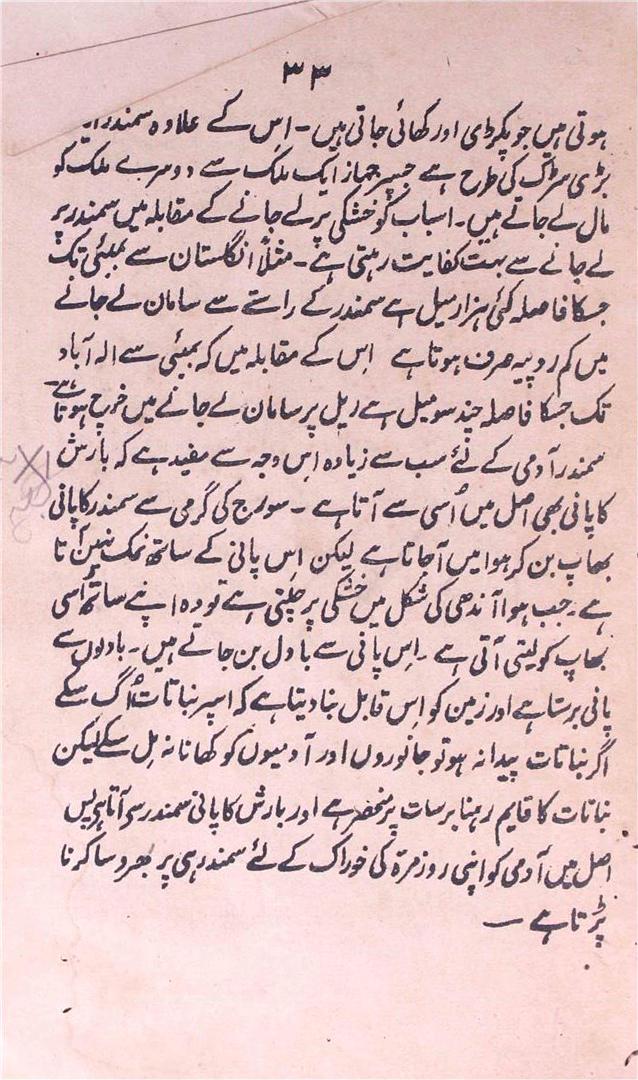 ۳۳
ہوتی ہیں جو پکڑی اور کھائی جاتی ہیں۔ اِس کے علاوہ سمندر ایک
بڑی سڑک کی طرح ہے جسپر جہاز ایک ملک سے دوسرے ملک کو
مال لے جاتے ہیں۔ اسباب کو خشکی پر لے جانے کے مقابلہ میں سمندر پر
لے جانے سے بہت کفایت رہتی ہے۔ مثلاً انگلستان سے بمبئی تک
جسکا فاصلہ کئی ہزار میل ہے سمندر کے راستے سے سامان لے جانے
میں کم روپیہ صرف ہوتا ہے اس کے مقابلہ میں کہ بمبئی سے الہ آباد
تک جسکا فاصلہ چند سو میل ہے ریل پر سامان لے جانے میں خرچ ہوتا ہے۔
سمندر آدمی کے لئے سب سے زیادہ اِس وجہ سے مفید ہے کہ بارش
کا پانی بھی اصل میں اُسی سے آتا ہے ۔ سورج کی گرمی سے سمندر کا پانی
بھاپ بن کر ہوا میں آجاتا ہے لیکن اِس پانی کے ساتھ نمک نہیں آتا
ہے۔ جب ہوا آندھی کی شکل میں خشکی پر چلتی ہے تو وہ اپنے ساتھ اُسی
بھاپ کو لیتی آتی ہے ۔ اِس پانی سے بادل بن جاتے ہیں۔ بادلوں سے
پانی برستا ہے اور زمین کو اِس قابل بنا دیتا ہے کہ اسپر نباتات اُگ سکے
اگر نباتات پیدا نہ ہو تو جانوروں اور آدمیوں کو کھانا نہ مِل سکے لیکن
نباتات کا قایم رہنا برسات پر منحصر ہے اور بارش کا پانی سمندر سے آتا ہے پس
اصل میں آدمی کو اپنی روزمرّہ کی خوراک کے لئے سمندر ہی پر بھروسا کرنا
پڑتا ہے ۔